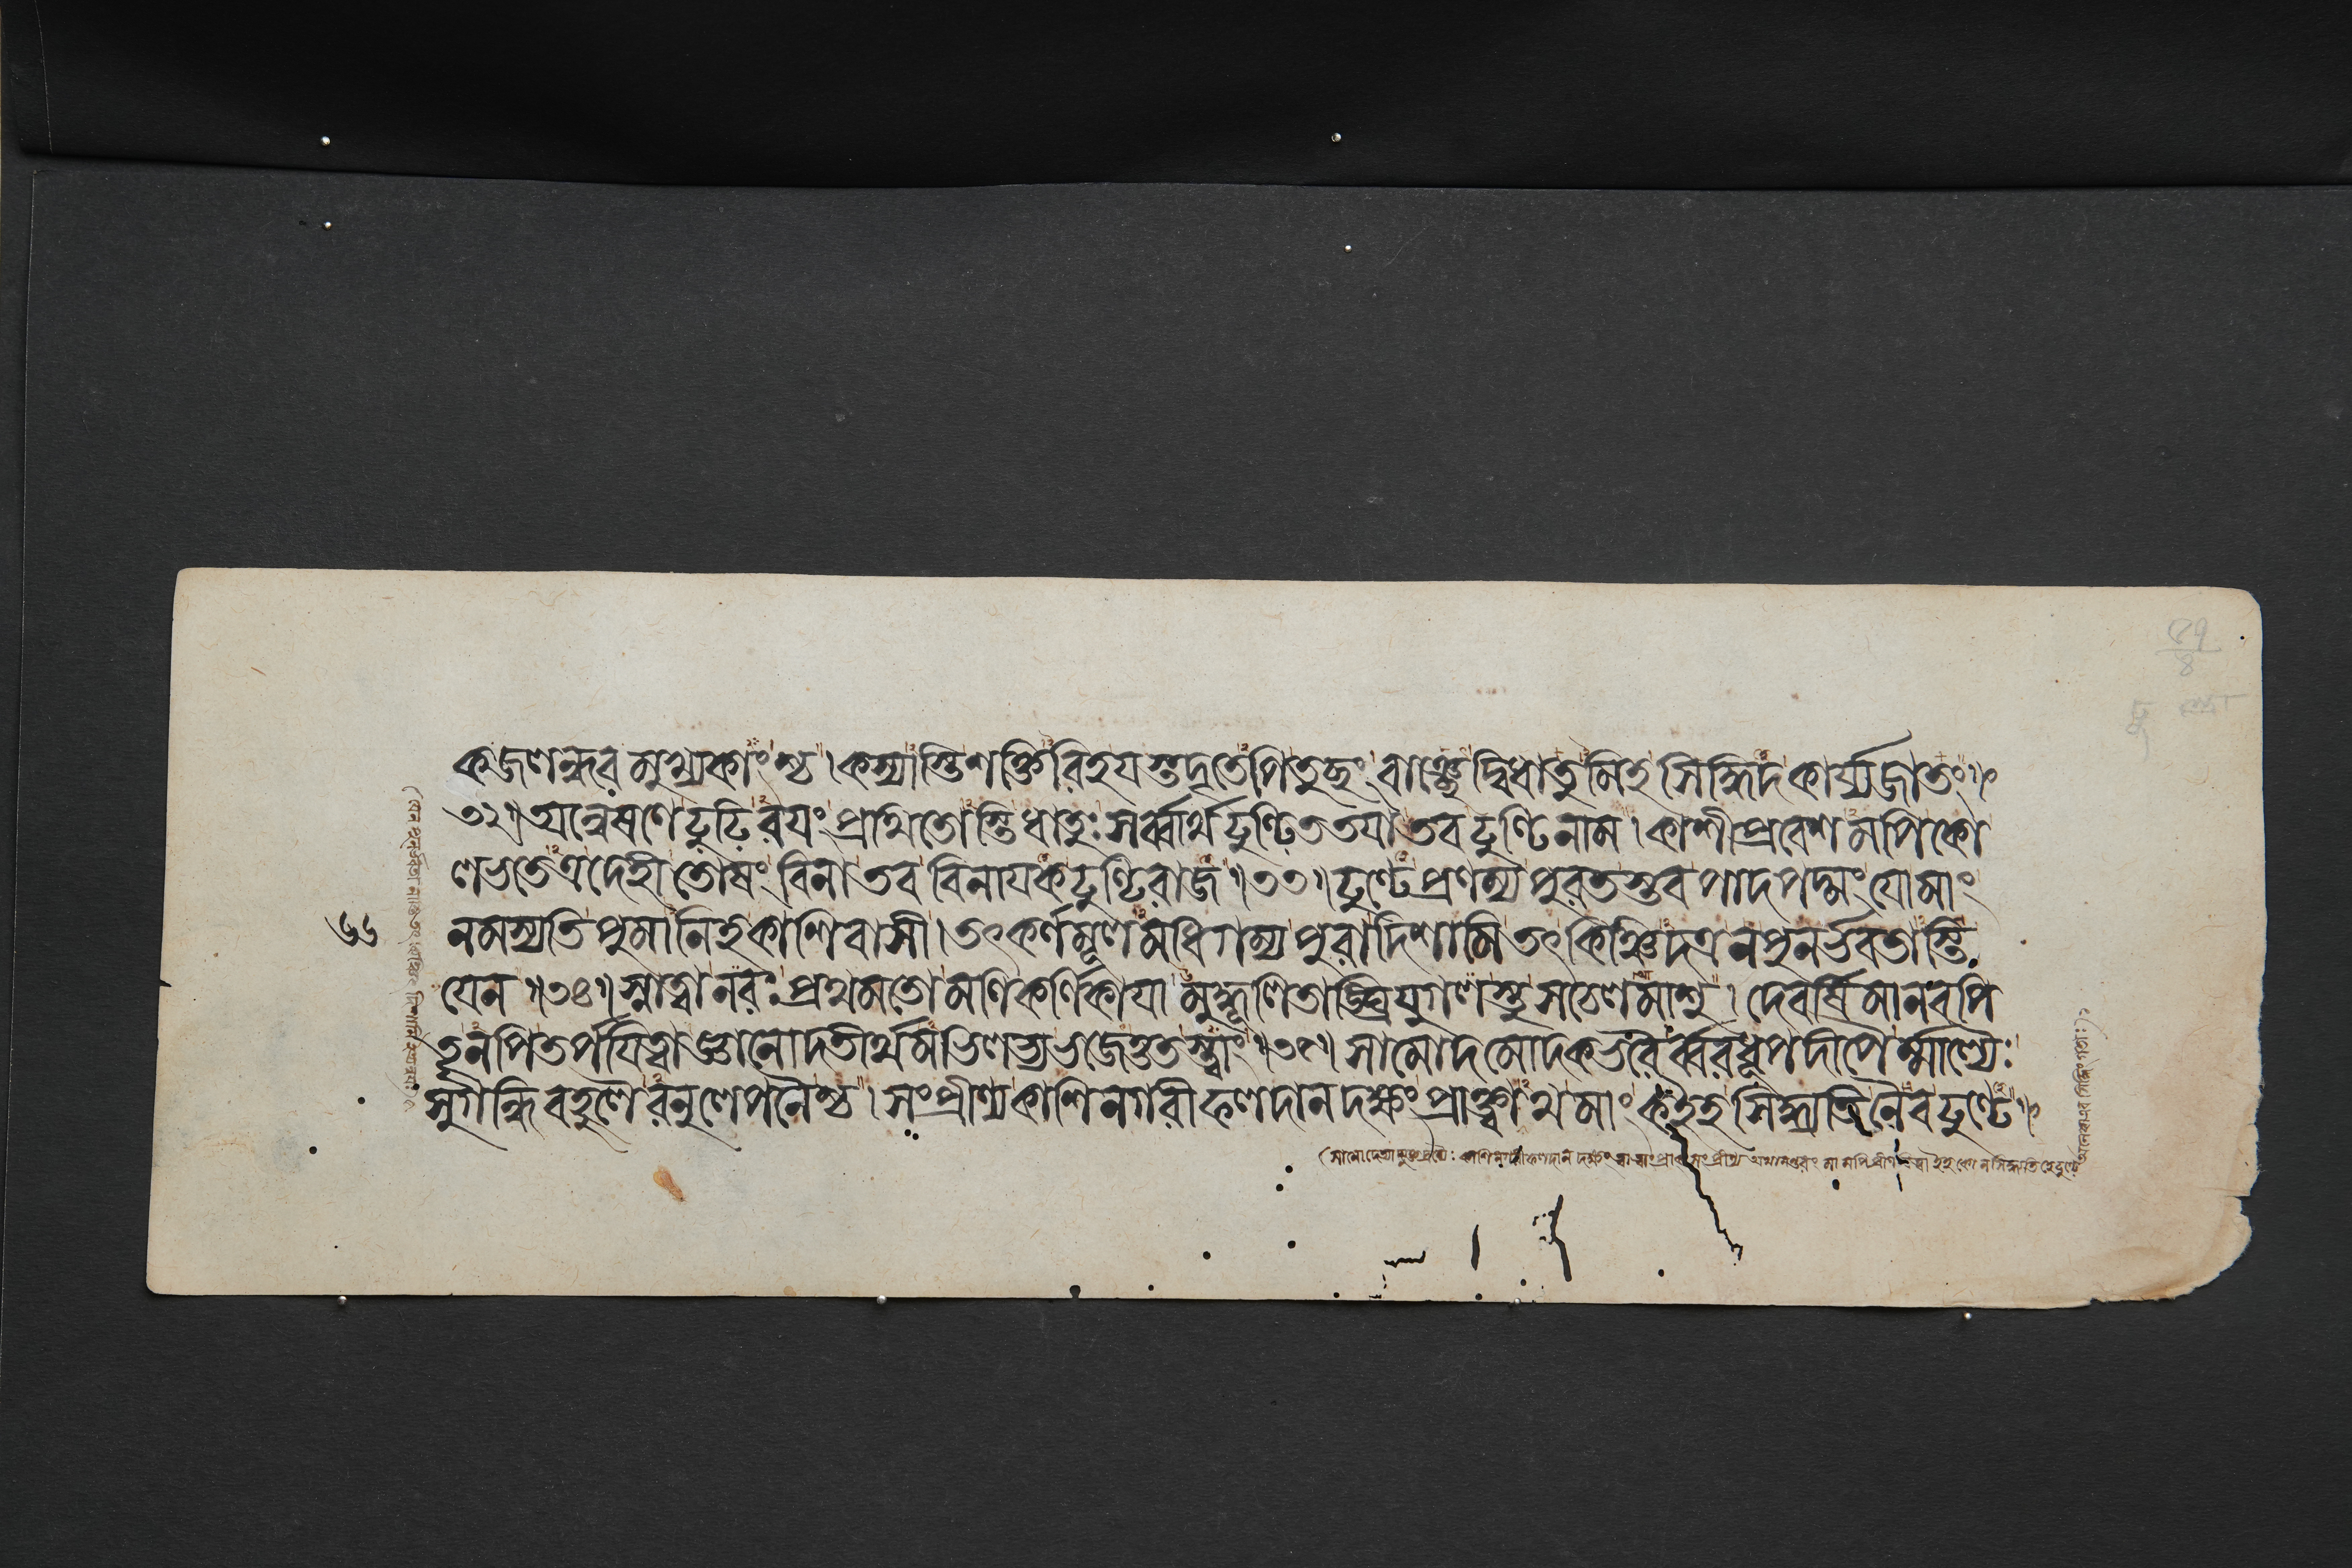 কজলন্ধর মুখ্যকাংশ্চ । কস্যাস্তি শক্তিরিহ যস্তদৃতেপি তুচ্ছং বাঞ্ছেদ্বিধাতুমিহ সিদ্ধিদকার্য্যজাতং ॥
৩২॥ অন্বেষণে ঢুঢিরয়ং প্রথিতোস্তি ধাতুঃ সর্ব্বার্থঢুণ্ঢিততয়া তব ঢুণ্ঢিনাম । কাশীপ্রবেশমপি কো
লভতেত্র দেহী তোষং বিনা তব বিনায়ক ঢুণ্ঢিরাজ ॥৩৩॥ ঢুণ্ঢে প্রণম্য পুরতস্তব পাদপদ্মং যো মাং
৬৬ নমস্যতি পুমানিহ কাশিবাসী । তৎকর্ণমূলমধিগম্য পুরা দিশামি তৎকিঞ্চিদত্র ন পুনর্ভবতাস্তি
যেন ॥৩৪॥ স্নাত্বা নরঃ প্রথমতো মণিকর্ণিকায়া মুদ্ধূলিতাঙ্ঘ্রিযুগলস্তু সচেলমাশু । দেবর্ষিমানবপি
তৄনপি তর্পয়িত্বা জ্ঞানোদতীর্থমভিলভ্য ভজেত্ততস্ত্বাং ॥৩৫॥ সামোদমোদকভরৈর্ব্বরধূপদীপৈর্ম্মাল্যৈঃ
সুগন্ধিবহুলৈরনুলেপনৈশ্চ । সংপ্রীণ্য কাশিনগরীফলদানদক্ষং প্রোক্ত্বাথ মাং ক ইহ সিদ্ধ্যতি নৈব ঢুণ্ঢে ॥